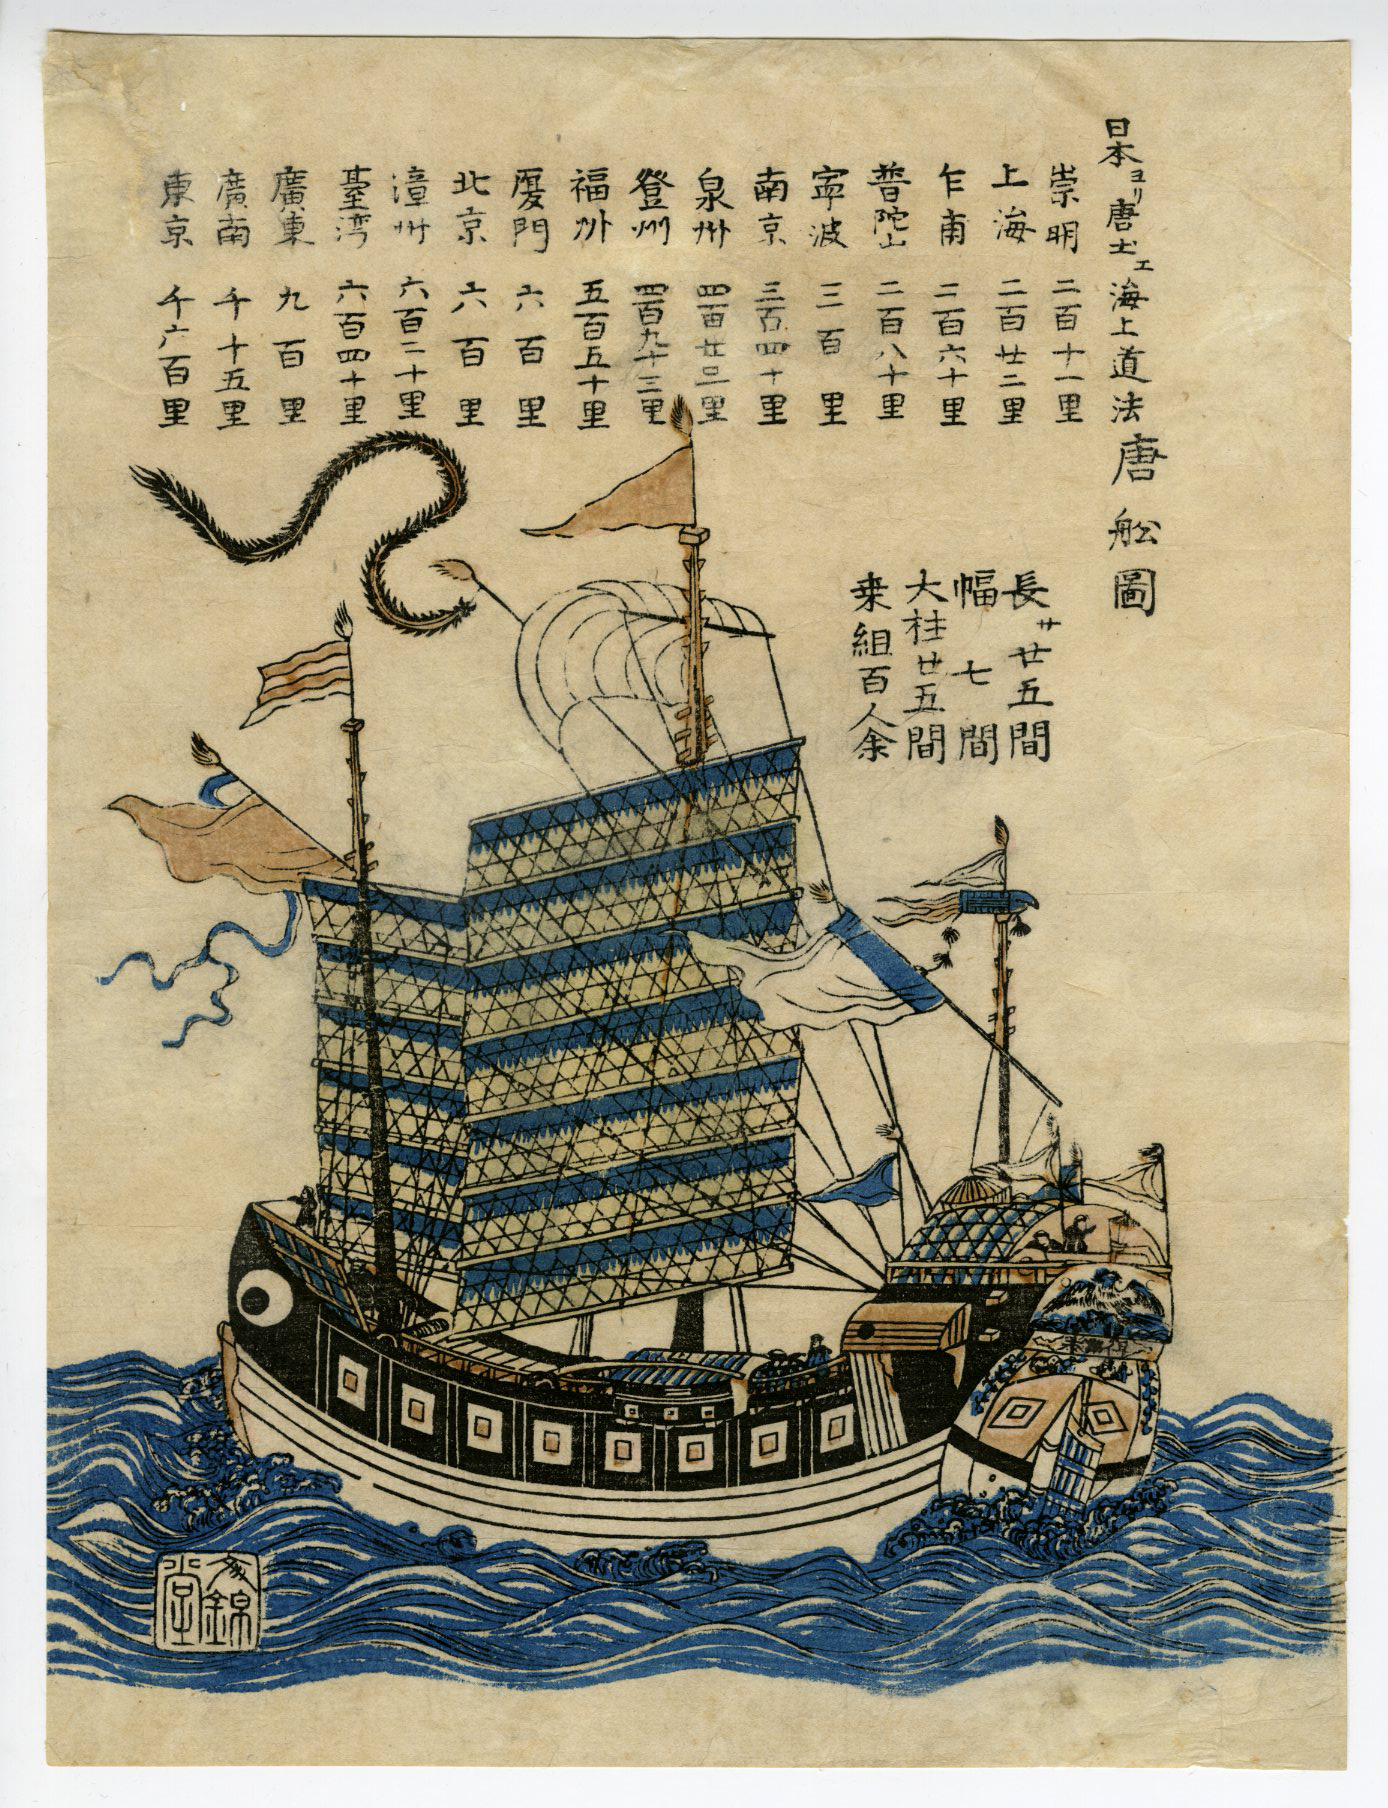 日本ヨリ唐土エ海上道法
唐舩圖
崇明 二百十一里
上海 二百廿二里
乍甫 二百六十里
普陀山 二百八十里
寧波 三百里
南京 三百四十里
泉州 四百廿三里
登州 四百九十三里
福州 五百五十里
厦門 六百里
北京 六百里
漳州 六百二十里
臺湾 六百四十里
廣東 九百里
廣南 千十五里
東京 千六百里
長サ廿五間
幅七間
大柱廿五間
乗組百人余
文錦堂